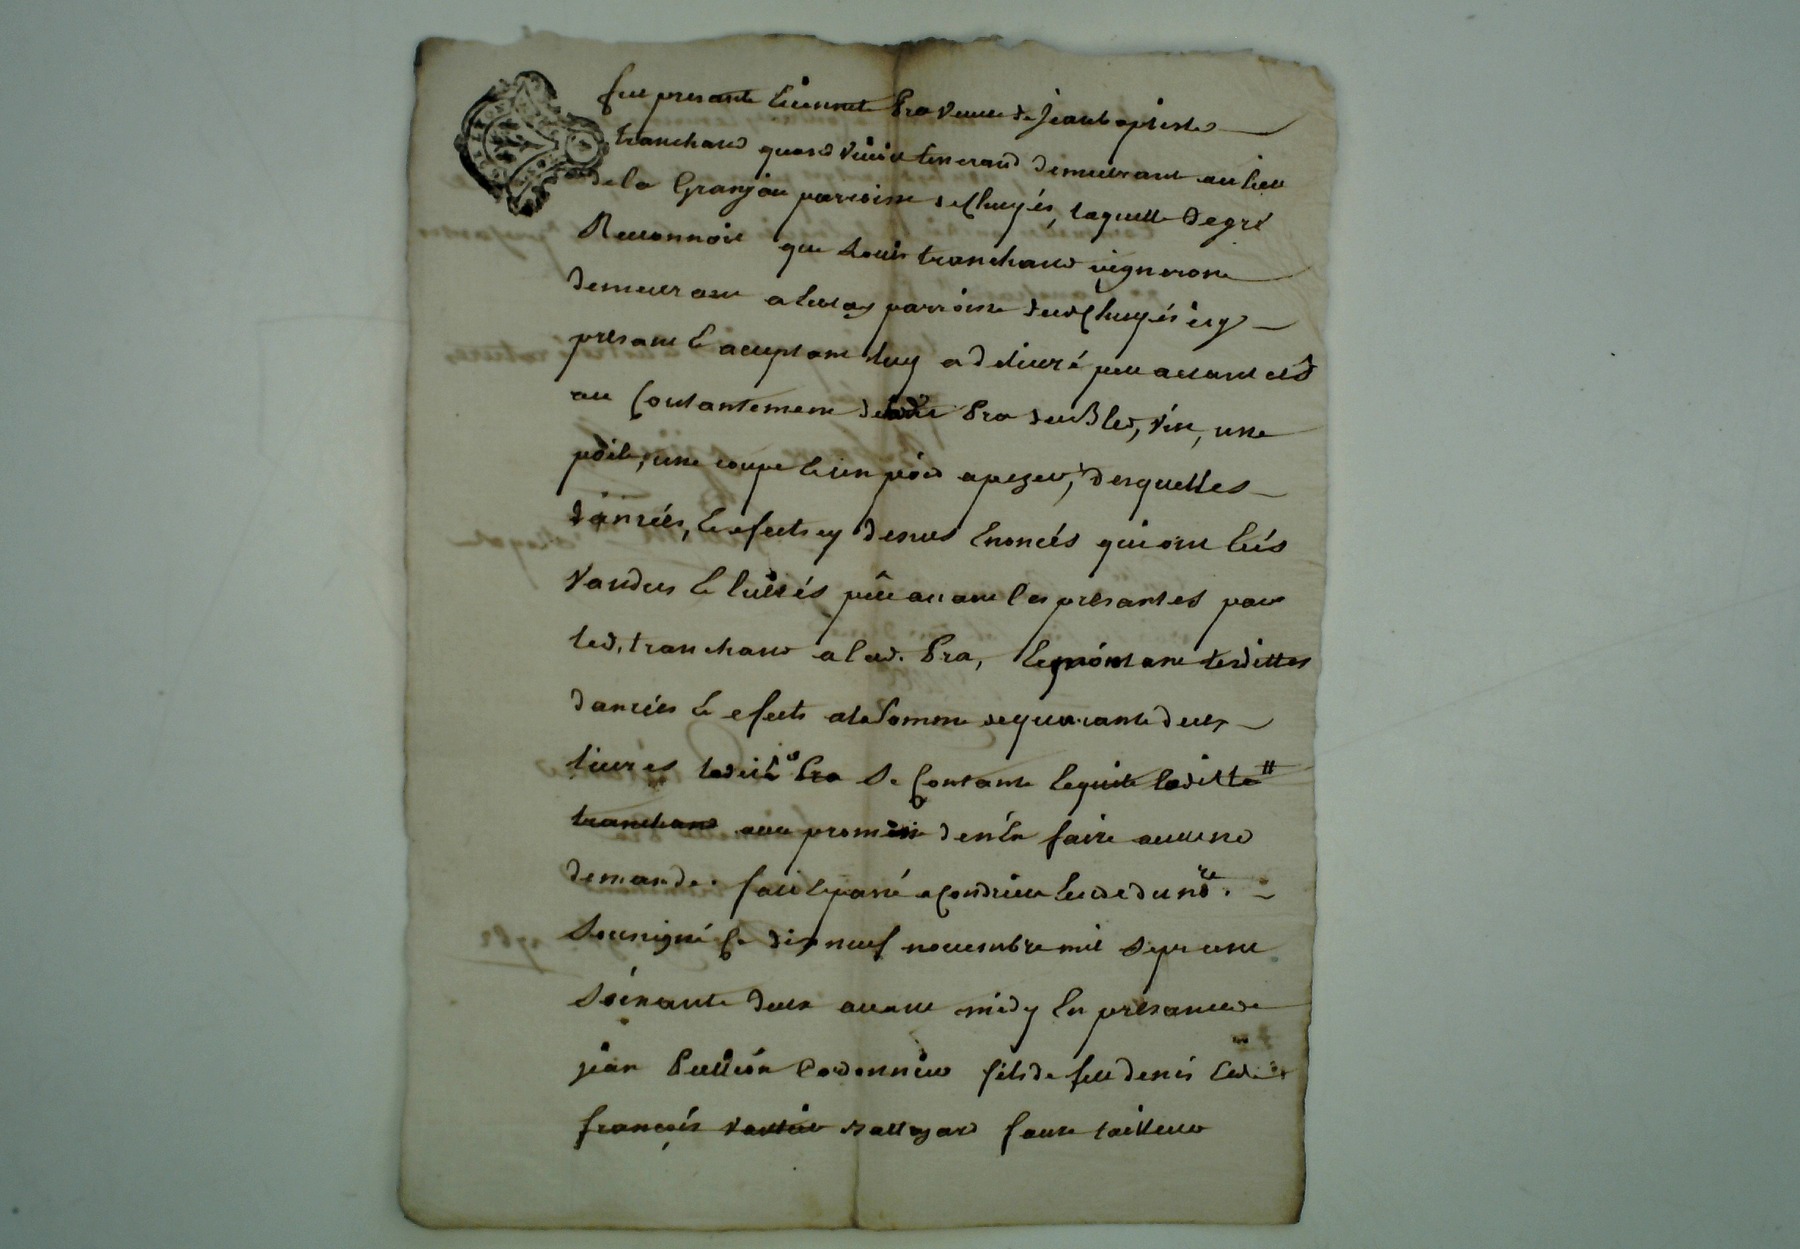 fut presante Etiennete Pra veuve de Jean baptiste
tranchand quand vivoit demeurant au lieu
de la Granjou parroisse de Chuyés, laquelle de gré
Reconnoit que Louis tranchand vigneron
demeurant a parroisse dud Chuyés icy
presant & aceptant luy a delivré peu avant
au Contantement de Pra du Bled, vin, une
poile, une coupe & un poid a pezer, desquelles
danrées, & efects cy dessus Enoncés qui ont Etés
vandus & livrés peu avant les presantes par
led. tranchand a lad. Pra, le montant desdittes
danrées & efects a la Somme de quarante deux
livres Pra Se Contante & quite laditte
tranchand avec promesse den En faire aucune
demande. fait & passé a Condrieu Etude du nore.
Sousigné Ce dix neuf novembre mil Sept cent
Soixante deux avant midy En presance de
jean Cordonnier fils de feu denis &
françois faure tailleur